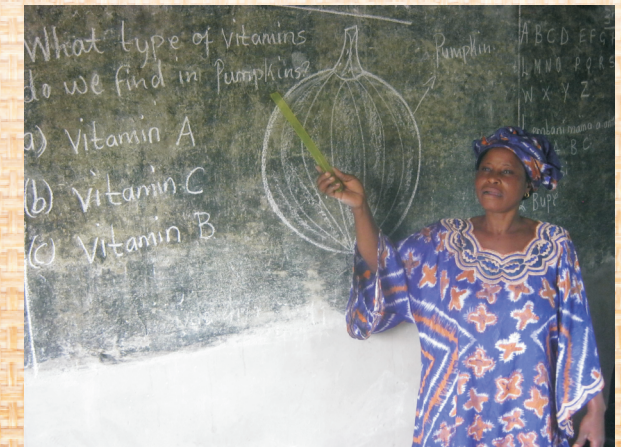 What type of Vitamins
do we find in Pumpkins?
a) Vitamin A
(b) Vitamin C
(c) Vitamin B
Pumpkin
A B C D E F G
W X Y Z
Bupe